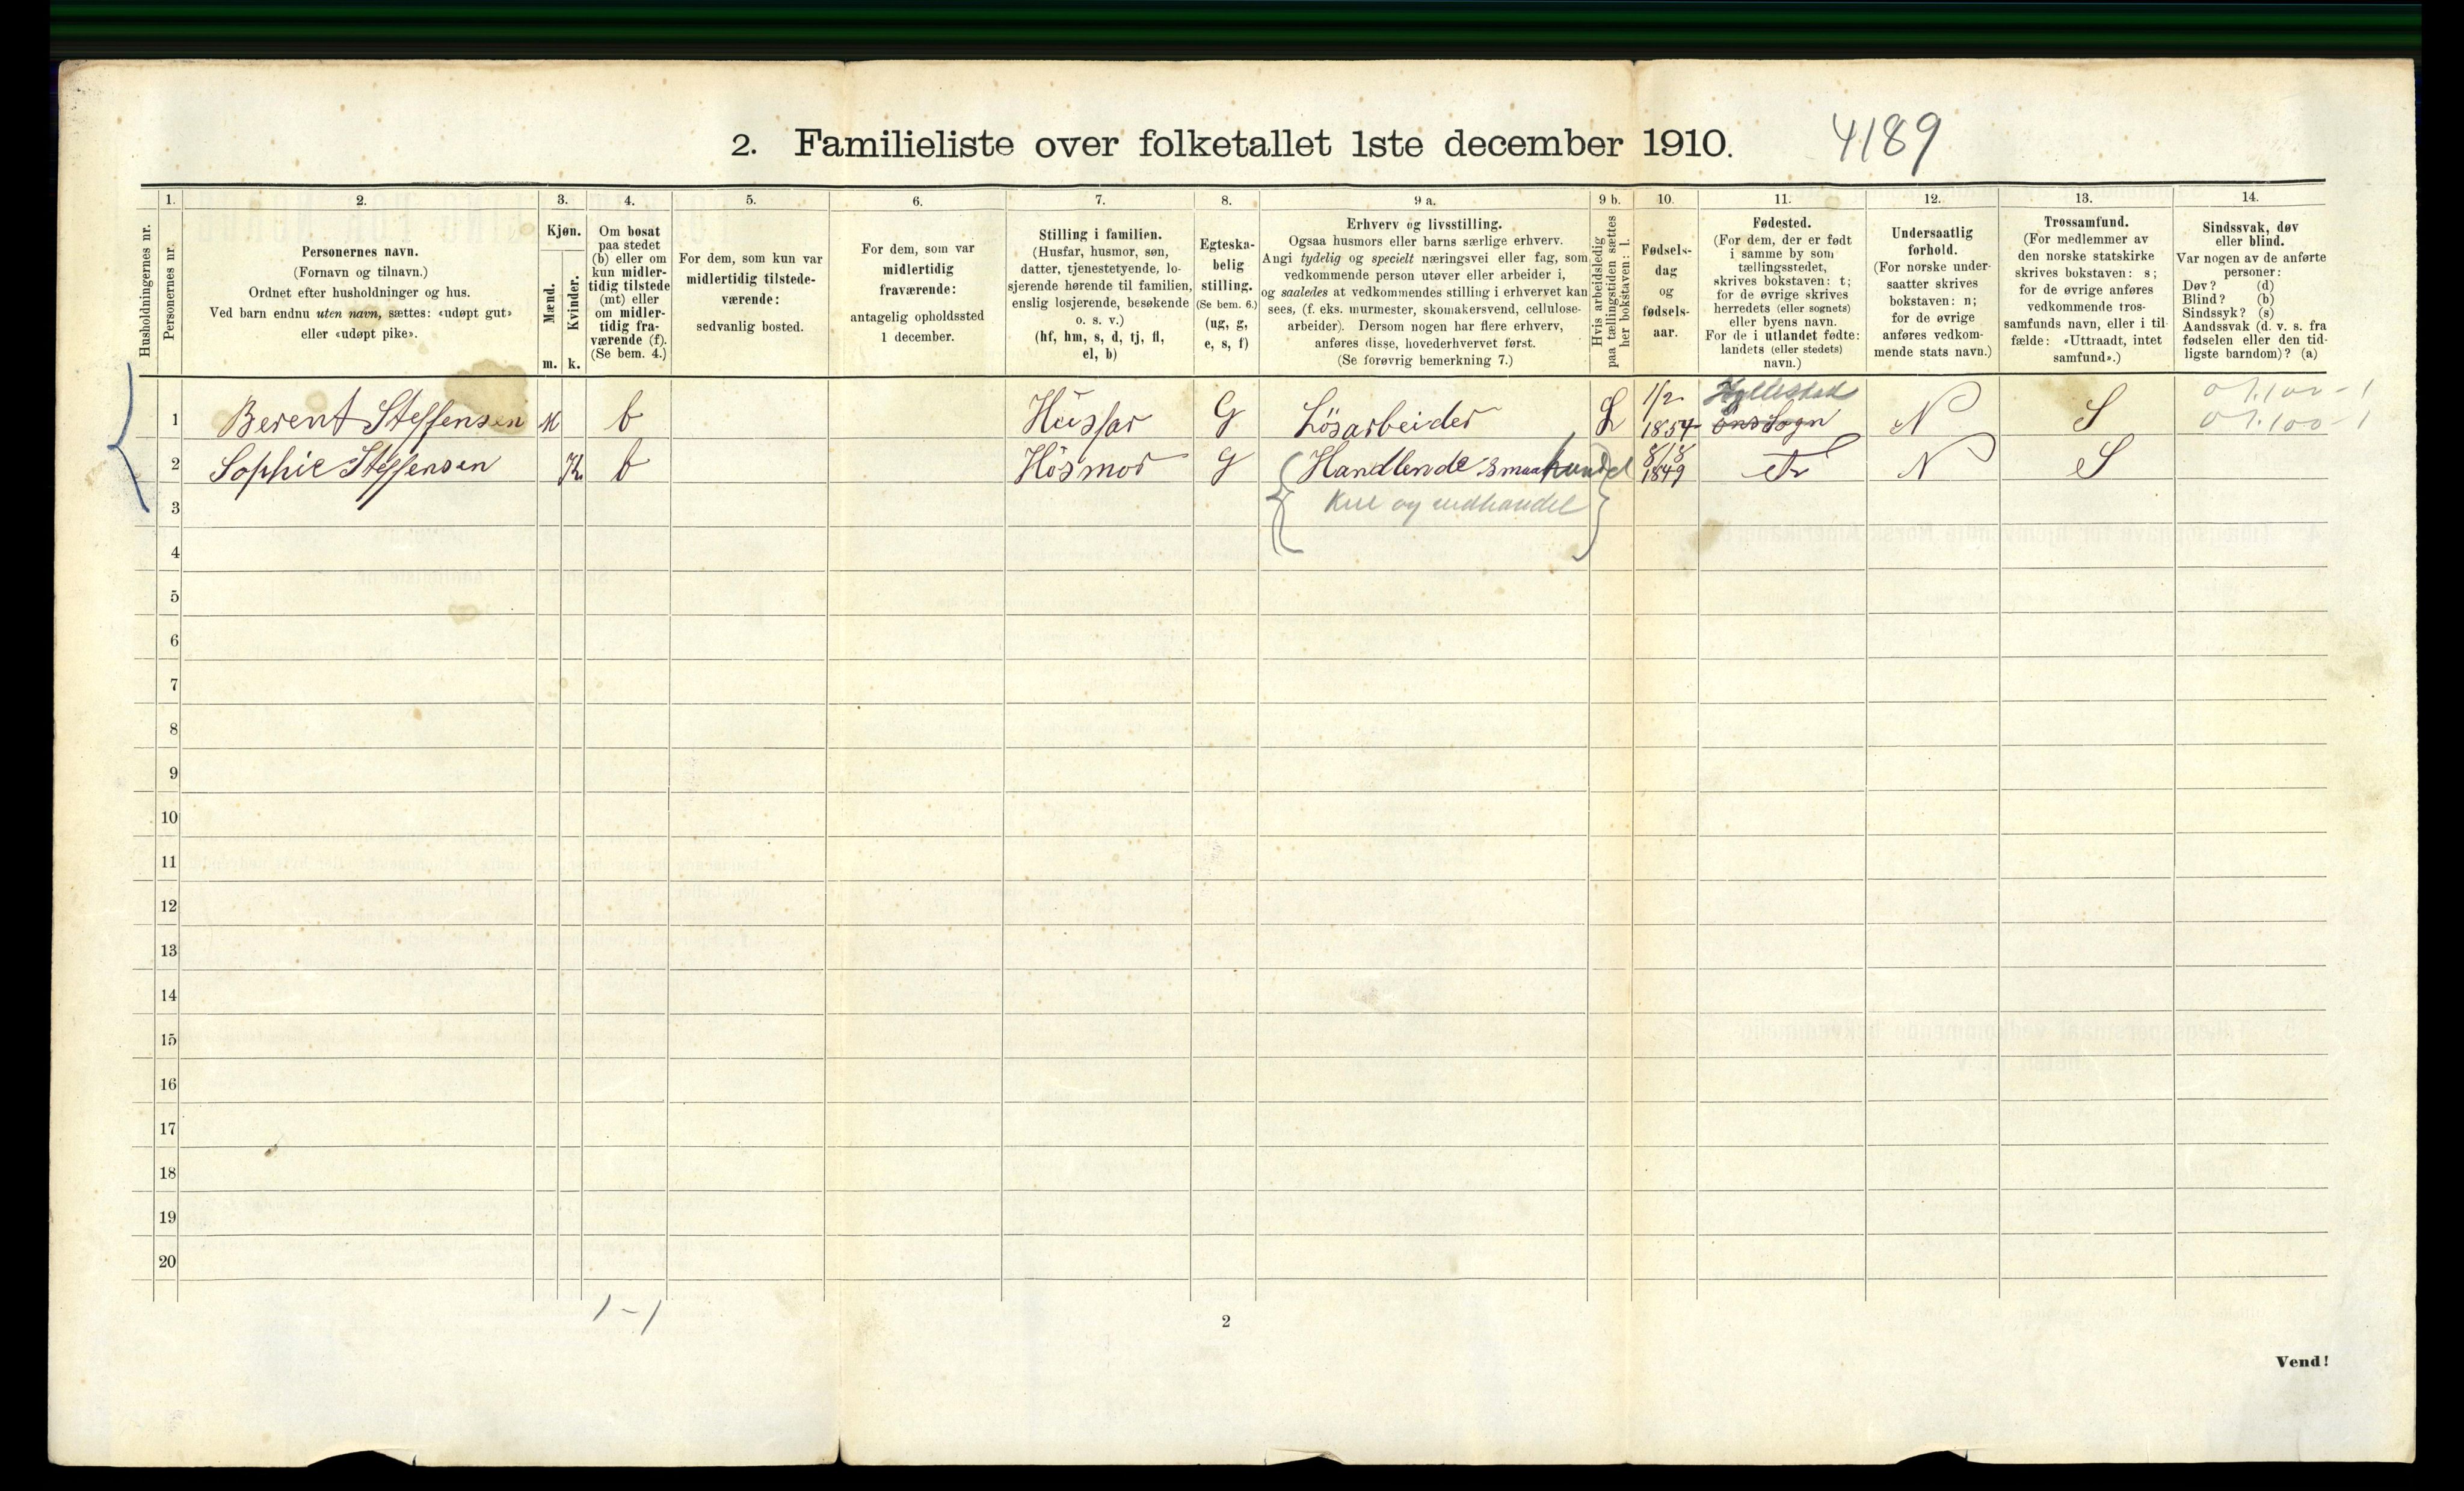 2. Familieliste over folketallet 1ste december 1910. 4189
Husholdningernes nr.
1.
Personernes nr.
2.
Personernes navn.
(Fornavn og tilnavn.)
Ordnet efter husholdninger og hus.
Ved barn endnu uten navn, sættes: «udøpt gut»
eller «udøpt pike».
3.
Kjøn.
Mænd.
Kvinder.
m. k.
4.
Om bosat
paa stedet
(b) eller om
kun midler-
tidig tilstede
(mt) eller
om midler-
tidig fra-
værende (f).
(Se bem. 4.)
5.
For dem, som kun var
midlertidig tilstede-
værende:
sedvanlig bosted.
6.
For dem, som var
midlertidig
fraværende:
antagelig opholdssted
1 december.
7.
Stilling i familien.
(Husfar, husmor, søn,
datter, tjenestetyende, lo-
sjerende hørende til familien,
enslig losjerende, besøkende
o. s. v.)
(hf, hm, s, d, tj, fl,
el, b)
8.
Egteska-
belig
stilling.
(Se bem. 6.)
(ug, g,
e, s, f)
9 a.
Erhverv og livsstilling.
Ogsaa husmors eller barns særlige erhverv.
Angi tydelig og specielt næringsvei eller fag, som
vedkommende person utøver eller arbeider i,
og saaledes at vedkommendes stilling i erhvervet kan
sees, (f. eks. murmester, skomakersvend, cellulose-
arbeider). Dersom nogen har flere erhverv,
anføres disse, hovederhvervet først.
(Se forøvrig bemerkning 7.)
9 b.
Hvis arbeidsledig
paa tællingstiden sættes
her bokstaven: l.
10.
Fødsels-
dag
og
fødsels-
aar.
11.
Fødested.
(For dem, der er født
i samme by som
tællingsstedet,
skrives bokstaven: t;
for de øvrige skrives
herredets (eller sognets)
eller byens navn.
For de i utlandet fødte:
landets (eller stedets)
navn.)
12.
Undersaatlig
forhold.
(For norske under-
saatter skrives
bokstaven: n;
for de øvrige
anføres vedkom-
mende stats navn.)
13.
Trossamfund.
(For medlemmer av
den norske statskirke
skrives bokstaven: s;
for de øvrige anføres
vedkommende tros-
samfunds navn, eller i til-
fælde: «Uttraadt, intet
samfund».)
14.
Sindssvak, døv
eller blind.
Var nogen av de anførte
personer:
Døv? (d)
Blind? (b)
Sindssyk? (s)
Aandssvak (d. v. s. fra
fødselen eller den tid-
ligste barndom)? (a)
1 Berent Steffensen M b Husfar G Lösarbeider L 1/2 1854 Hyllestad N S
2 Sophie Steffensen K b Hösmor G Handlende smaahandel 8/8 1849 N S
3 vedhandel
4
5
6
7
8
9
10
11
12
13
14
15
16
17
18
19
20
1 - 1
2
Vend!